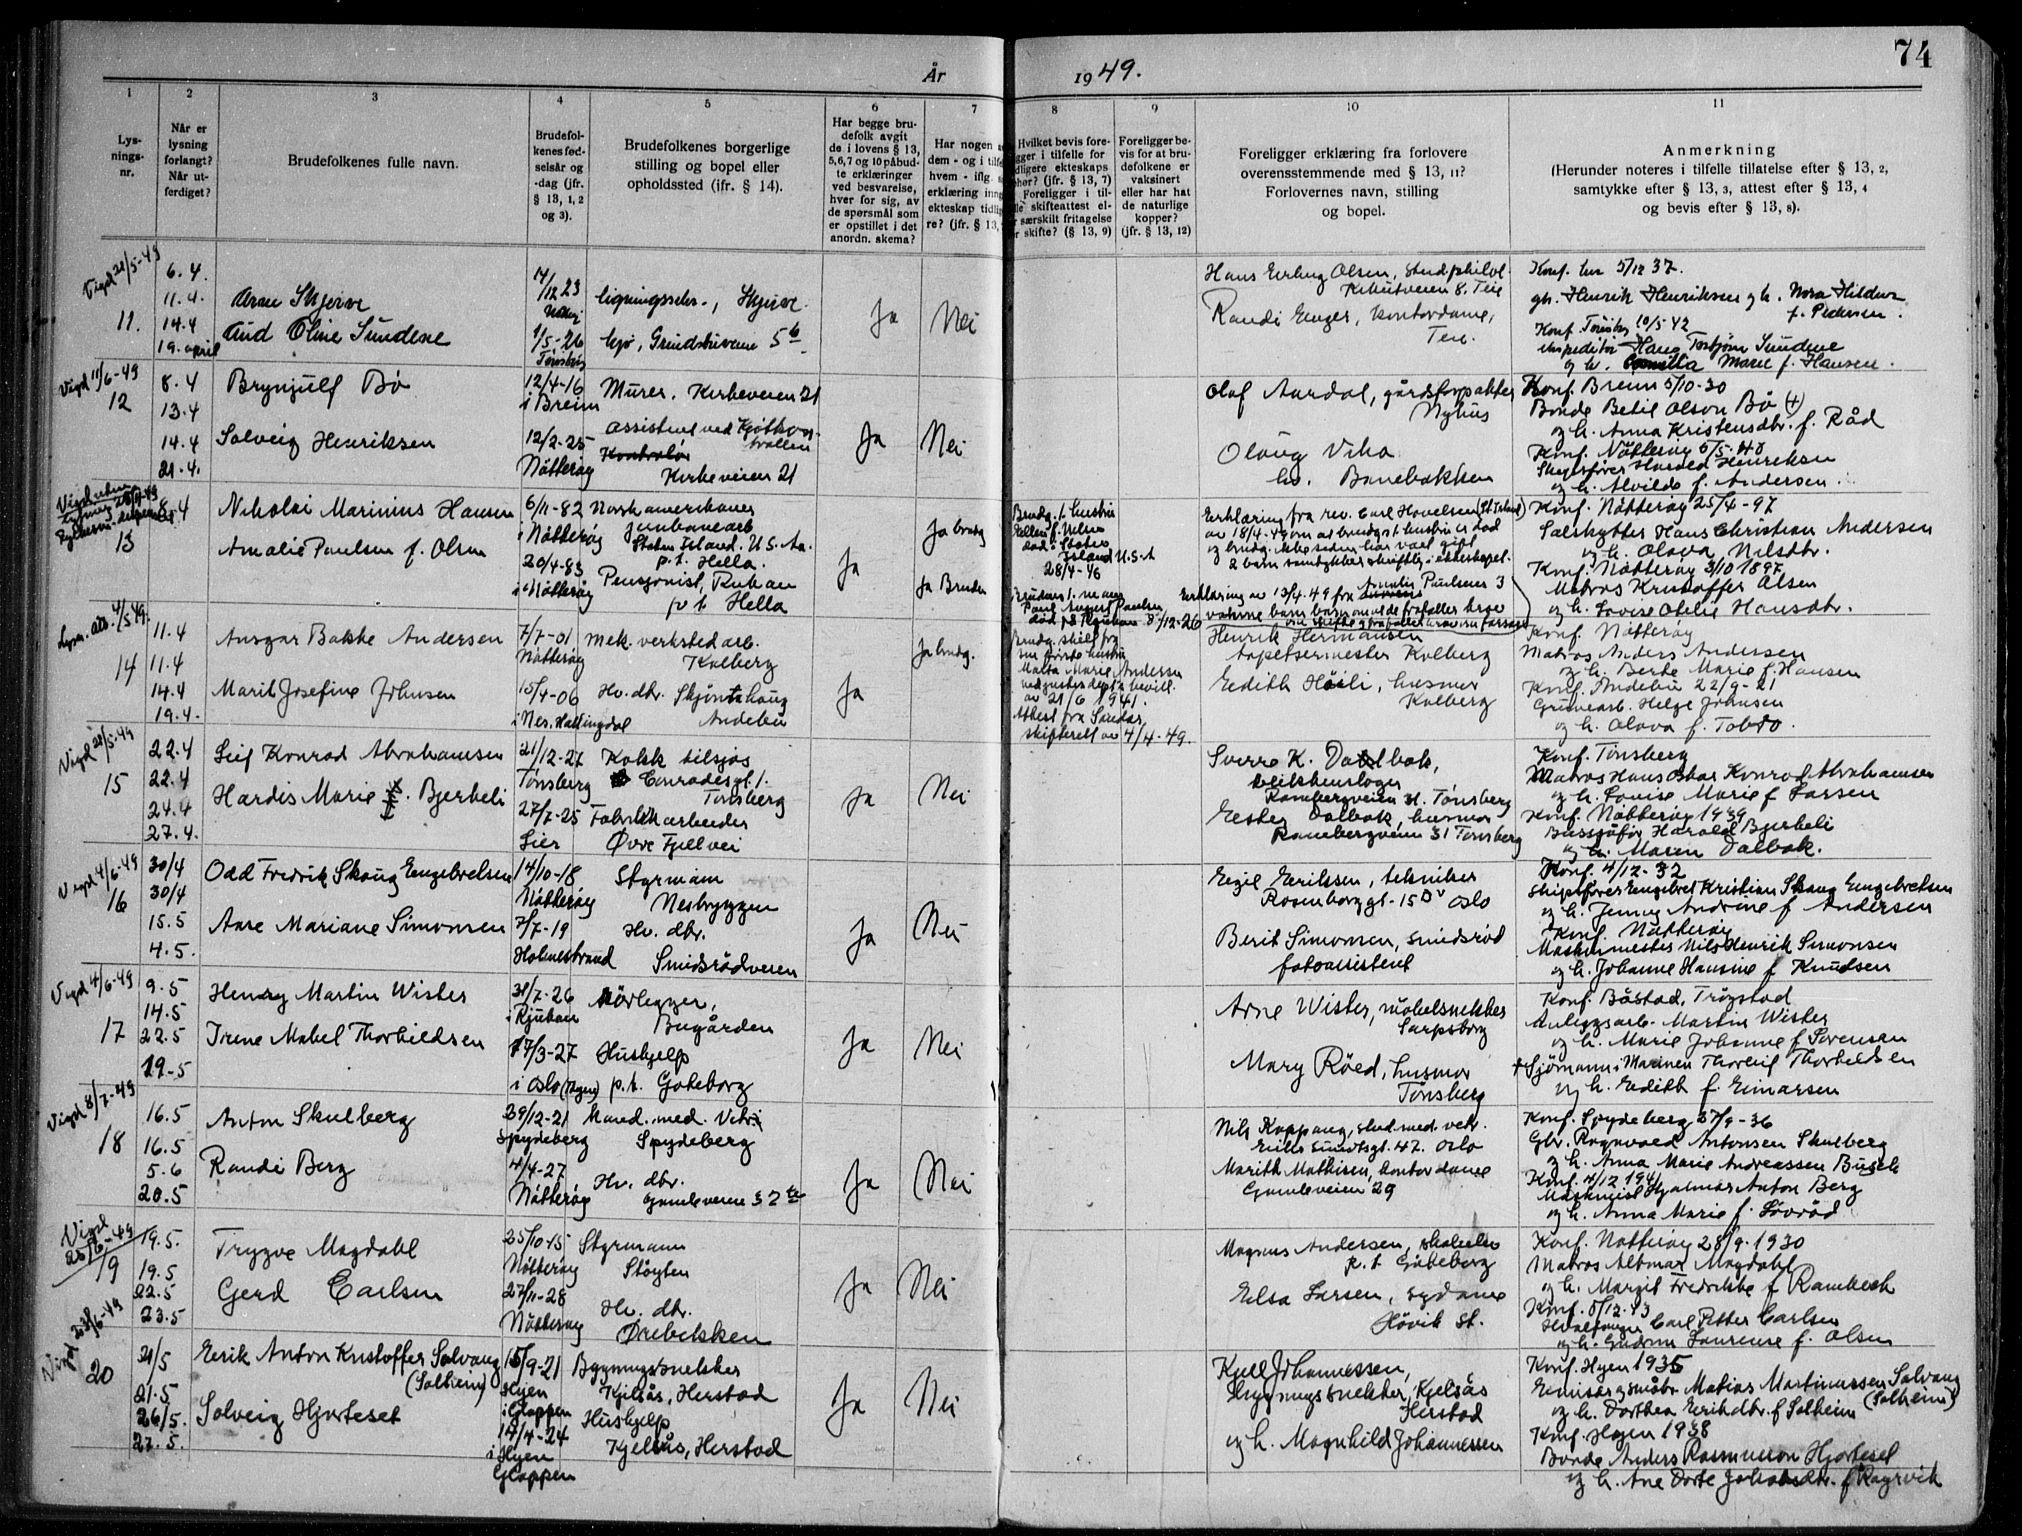 74
År 1949.
1 2 3 4 5 6 7 8 9 10 11
Lys-
nings-
nr.
Når er
lysning
forlangt?
Når ut-
ferdiget?
Brudefolkenes fulle navn.
Brudefol-
kenes fød-
selsår og
-dag (jfr.
§ 13, 1, 2
og 3).
Brudefolkenes borgerlige
stilling og bopel eller
opholdssted (ifr. § 14).
Har begge bru-
defolk avgit
de i lovens § 13,
5, 6, 7 og 10 påbud-
te erklæringer
ved besvarelse,
hver for sig, av
de spørsmål som
er opstillet i det
anordn. skema?
Har nogen
dem - og i tilfe
hvem - iflg.
erklæring inng
ekteskap tidli
re? (jfr. § 13,
Hvilket bevis fore-
gger i tilfelle for
dligere ekteskaps
phør? (jfr. § 13, 7)
Foreligger i til-
lle skifteattest el-
r særskilt fritagelse
r skifte? (§ 13, 9)
Foreligger be-
vis for at bru-
defolkene er
vaksinert
eller har hat
de naturlige
kopper?
(jfr. § 13, 12)
Foreligger erklæring fra forlovere
overensstemmende med § 13, 11?
Forlovernes navn, stilling
og bopel.
Anmerkning
(Herunder noteres i tilfelle tillatelse efter § 13, 2,
samtykke efter § 13, 3, attest efter § 13, 4
og bevis efter § 13, 8).
11.
6.4.
11.4.
14.4
19. april
Arne Skjerve
Aud Oline Sundene
1/5-26
Tønsberg
Ja
Nei
Hans Erling Olsen, stud. philol.
Randi Enger, kontordame,
Teie.
Konf. her 5/12 37.
gb. Henrik Henriksen og h. Nora Hildur
f. Pedersen.
Konf. Tønsby 10/5-42
ekspeditør Hans Torbjørn Sundene
og h. Camilla Marie f. Hansen.
Vigd 11/6-49
12
8.4
13.4
14.4
21.4.
Brynjulf Bø
Solveig Henriksen
12/4-16
i Breim
12/2-25
Nøtterøy
Murer. Kirkeveien 21
Assistent ved Kjøttkon-
trollen
Kirkeveien 21
Ja
Nei
Olaf Aardal, gårdsforpakter
Nyhus
Olaug Vika
hv. Banebakken
Konf. Breim 5/10-30
Bonde Betil Olson Bø (+)
og h. Anna Kristensdtr. f. Råd
Konf. Nøtterøy 5/5-40
Skipsfører Harald Henriksen
og h. Alvilde f. Andersen.
13
8.4
Nikolai Marinius Hansen
Amalie Paulsen f. Olsen
6/11-82
i Nøtterøy
20/4-83
i Nøtterøy
Norsk amerikaner
Jernbanearb
Staten Island. U.S.A.
p.t. Hella.
Pensjonist, Rukan
p.t. Hella
Ja
Ja brudg
Ja Bruden
Brudg. f. hustru
Ellen f. Nelsen
død i Staten
Island U.S.A
28/4-46
Paul August Paulsen
død på Rjukan 8/12-26
Erklæring fra rev. Carl Hovelsen (St. Island)
av 18/4-49 om at brudgs f. hustru er død
og brudg. ikke siden har vært gift
2 barn samtykker skriftlig i ekteskapet.
Erklæring av 13/4.49 fra Amalie Paulsens 3
voksne barn
Konf. Nøtterøy 25/4-97
Selskytter Hans Christian Andersen
og h. Olava Nilsdtr.
Konf. Nøtterøy 3/10 1897
Matros Kristoffer Olsen
og h. Lovise Otelie Hansdtr.
14
11.4
11.4
14.4
19.4.
Ansgar Bakke Andersen
Marit Josefine Johnsen
7/7-01
Nøtterøy
15/4-06
i Nes, Hallingdal
Mek. verksted arb.
Kolberg
Hv. dtr. Skjøntehaug
Andebu
Ja
Ja brudg.
Brudg. skilt fra
sin første hustru
Malta Marie Andersen
ved justis dep's bevill.
av 21/6 1941.
Attest fra Sandar
skifterett av 4/4-49.
Henrik Hermansen
tapetserer mester Kolberg
Edith Høili, husmor
Kolberg
Konf. Nøtterøy
Matros Anders Andersen
og h. Berte Marie f. Hansen
Konf. Andebu 22/9-21
Gruvearb. Helge Johnsen
og h. Olava f. Tobro.
15
22.4
22.4
24.4
27.4.
Leif Konrad Abrahamsen
Hardis Marie Bjerkeli
21/12-27
Tønsberg
27/7-25
Lier
Kokk tilsjøs
Conradesgt. 1.
Tønsberg
Fabrikkarbeider
Øvre Fjellvei
Ja
Nei
Sverre K. Dalbak,
Rambergveien 31. Tønsberg
Ester Dalbak, husmor
Rambergveien 31 Tønsberg
Konf. Tønsberg
Matros Hans Oskar Konrad Abrahamsen
og h. Lovise Marie f. Larsen
Konf. Nøtterøy 1939
Bussjåfør Harald Bjerkeli
og h. Maren Dalbak.
Vigd 4/6-49
16
30/4
30/4
15.5
4.5.
Odd Fredrik Skaug Engebretsen
Aase Mariane Simonsen
14/10-18
Nøtterøy
7/7-19
Holmestrand
Styrmann
Nesbryggen
Hv. dtr.
Smidsrødveien
Ja
Nei
Egil Eriksen, tekniker
Rosenborggt. 15 Oslo
Berit Simonsen, Smidsrød
fotoassistent
Konf. 4/12-32
Skipsfører Engebret Kristian Skaug Engebretsen
og h. Jenny Andrine f. Andersen
Konf. Nøtterøy
Maskinmester Nils Henrik Simonsen
og h. Johanne Hansine f. Knudsen
Vigd 4/6-49
17
9.5
14.5
22.5
19-5
Henry Martin Wister
Irene Mabel Thorkildsen
31/7-26
i Rjukan
17/3-27
i Oslo
Rørlegger,
Bugården
Hushjelp
p.t. Gøteborg
Ja
Nei
Arne Wister, møbelsnekker
Sarpsborg
Mary Røed, husmor
Tønsberg
Konf. Båstad, Trøgstad
Anleggsarb. Martin Wister
og h. Marie Johanne f. Sørensen
Sjømann i Marinen Thorleif Thorkildsen
og h. Edith f. Einarsen
Vigd 8/7-49
18
16.5
16.5
5.6
20.5
Anton Skulberg
Randi Berg
29/12-21
Spydeberg
4/4-27
Nøtterøy
kand. med. Vetr.
Spydeberg
Hv. dtr.
Gamleveien 32
Ja
Nei
Nils Koppang, stud. med. vetr.
Eilert Sundtsgt. 47. Oslo
Marith Mathisen, kontordame
Gamleveien 29
Konf. Spydeberg 27/9-36
Gbr. Ragnvald Antonsen Skulberg
og h. Anna Marie Andreassen
Konf. 4/12 1941
Maskinist Hjalmar Anton Berg
og h. Anna Marie f. Løvrød
Vigd
25/6-49
19
19.5.
19.5
22.5
23.5
Trygve Magdahl
Gerd Carlsen
25/10-15
Nøtterøy
27/11-28
Nøtterøy
Styrmann
Støyten
Hv. dtr.
Ørebekken
Ja
Nei
Magnus Andersen,
p.t. Gøteborg
Elsa Larsen, sydame
Høvik St.
Konf. Nøtterøy 28/9-1930
Matros Altmar Magdahl
og h. Margit Fredrikke f. Rambech
Konf. 5/12-43
Hvalfanger Carl Petter Carlsen
og h. Gudrun Laurense f. Olsen
20
21/5
21.5
26/5.
27.5.
Eerik Anton Kristoffer Solvang
(Solheim)
Solveig Hjorteset
15/9-21
Hyen
i Gloppen
14/4-24
i Hyen
Gloppen
Bygningssnekker
Kjelsås, Herstad
Hushjelp
Kjelsås, Herstad
Ja
Nei
Kjell Johannessen,
Bygningssnekker, Kjelsås
Herstad
og h. Magnhild Johannessen
Konf. Hyen 1935
Emisær og småbr. Matias Martinussen Solvang
(Solheim)
og h. Dorthea Eriksdtr. f Solheim
Konf. Hyen 1938
Bonde Anders Rasmusson Hjorteset
og h. Ane Dorte Jakobsdtr. f.